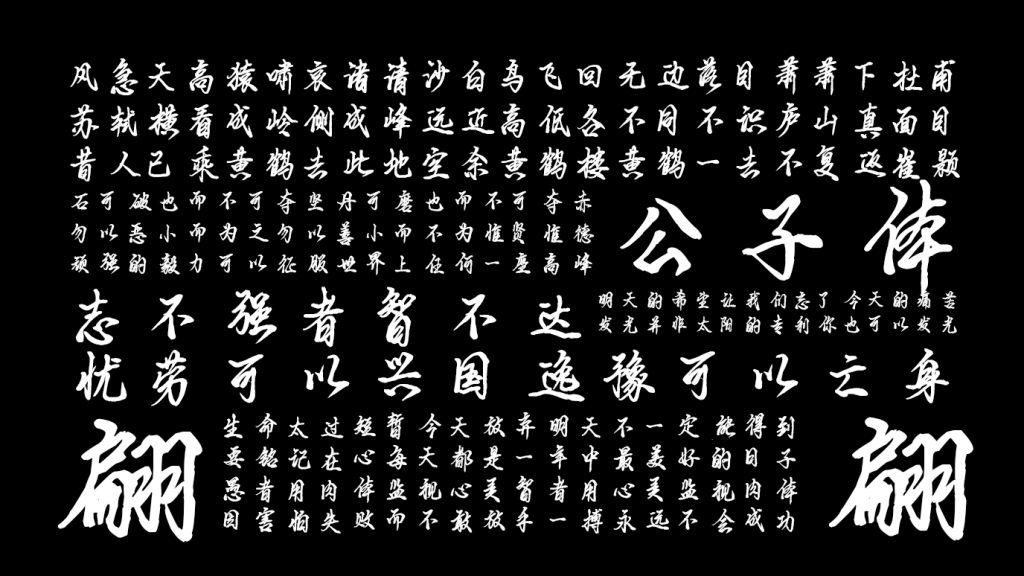 风急天高猿啸哀诸请沙白鸟飞回无边落目萧萧下杜甫
苏轼横看成岭侧成峰远近高低各不同不识庐山真面目
昔人已乘黄鹤去此地空余黄鹤楼黄鹤一去不复返崔颢
石可破也而不可夺坚丹可磨也而不可夺赤
勿以恶小而为之勿以善小而不为惟贤惟德
顽强的毅力可以征服世界上任何一座高峰
公子体
志不强者智不达
明天的希望让我们忘了今天的痛苦
发光并非太阳的专利你也可以发光
忧劳可以兴国逸豫可以亡身
翩
生命太过短暂今天放弃明天不一定能得到
要铭记在心每天都是一年中最美好的日子
愚者用肉体监视心灵智者用心灵监视肉体
因害怕失败而不敢放手一搏永远不会成功
翩